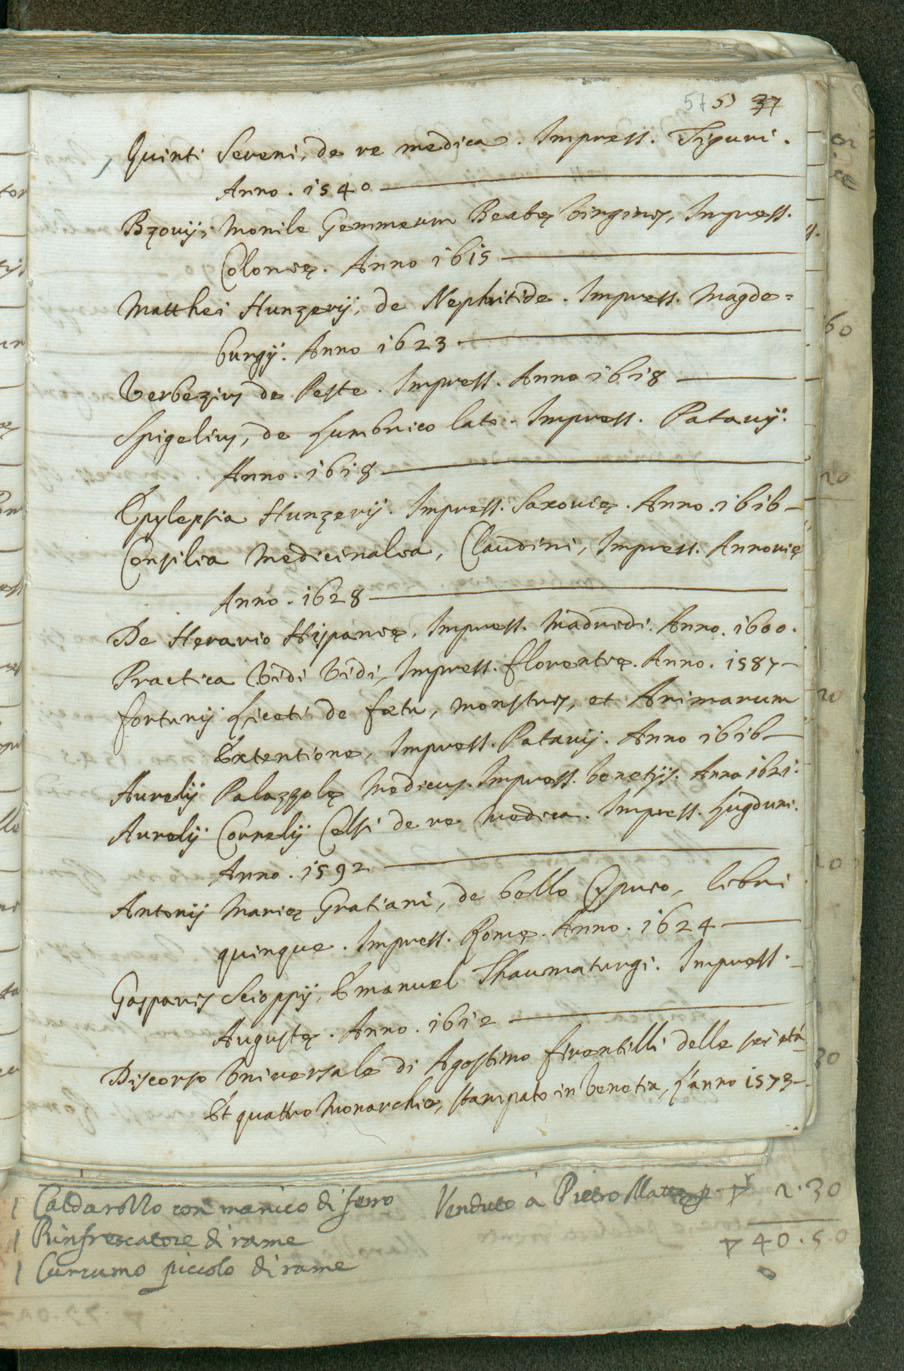 57 53 37
Quinti Sereni, de re medica. Impress. Tiguri.
Anno. 1540
Bzovij, Monile Gemmeum Beatę Virginis, Impress.
Colonię. Anno 1615
Matthei Hunzerij, de Nephritide. Impress. Magde=
burgij. Anno 1623
Verbezius de Peste. Impress. Anno 1618
Spigelius, de Lumbrico lato. Impress. Patavij.
Anno. 1618
Epylepsia Hunzerij. Impress. Saxonię. Anno. 1616
Consilia Medicinalia, Claudini, Impress. Annonię
Anno. 1628
De Herario Hispanię, Impress. Madridi. Anno. 1600.
Practica Vidi Vidi, Impress. Florentię. Anno. 1587
Fortunij Liceti de foetu, monstris, et Animarum
Extentione, Impress. Patavij. Anno 1616
Aurelij Palazzolę Medicus. Impress. Venetijs. Anno 1621.
Aurelij Cornelij Celsi de re Medica. Impress. Lugduni.
Anno. 1592
Antonij Marię Gratiani, de bello Cyprio, libri
quinque. Impress. Romę. Anno. 1624
Gasparis Scioppij, Emanuel Thaumaturgi. Impress.
Augustę. Anno. 1612
Discorso Universale di Agostino Firentilli delle sei età
Et quattro Monarchie, stampato in Venetia, l'anno 1573
1 Caldarozzo con manico di ferro Venduto à Pietro 2.30
1 Rinfrescatore di rame 40.50
1 Cuccumo piccolo di rame